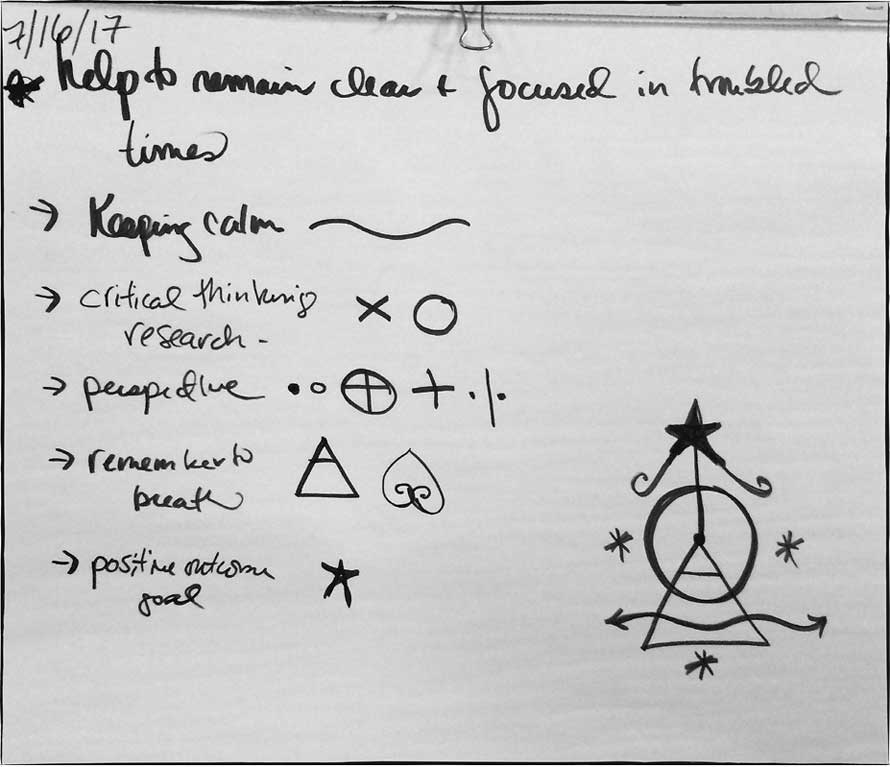 7/16/17
* help to remain clear + focused in troubled
times
→ Keeping calm
→ critical thinking
research -
→ perspective
→ remember to
breath
→ positive outcome
goal